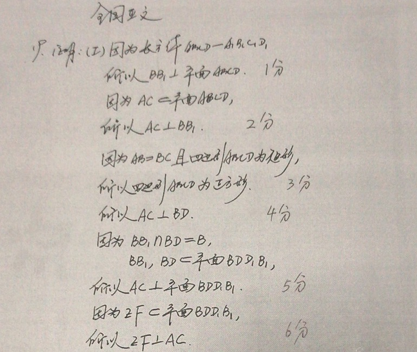 全国文
证明:(I)因为长方体ABCD-A₁B₁C₁D₁
所以BB₁⊥平面ABCD. 1分
因为AC⊂平面ABCD,
所以AC⊥BB₁. 2分
因为AB=BC且四边形ABCD为矩形,
所以四边形ABCD为正方形. 3分
所以AC⊥BD. 4分
因为BB₁∩BD=B,
BB₁, BD⊂平面BDD₁B₁,
所以AC⊥平面BDD₁B₁. 5分
因为EF⊂平面BDD₁B₁,
所以EF⊥AC. 6分